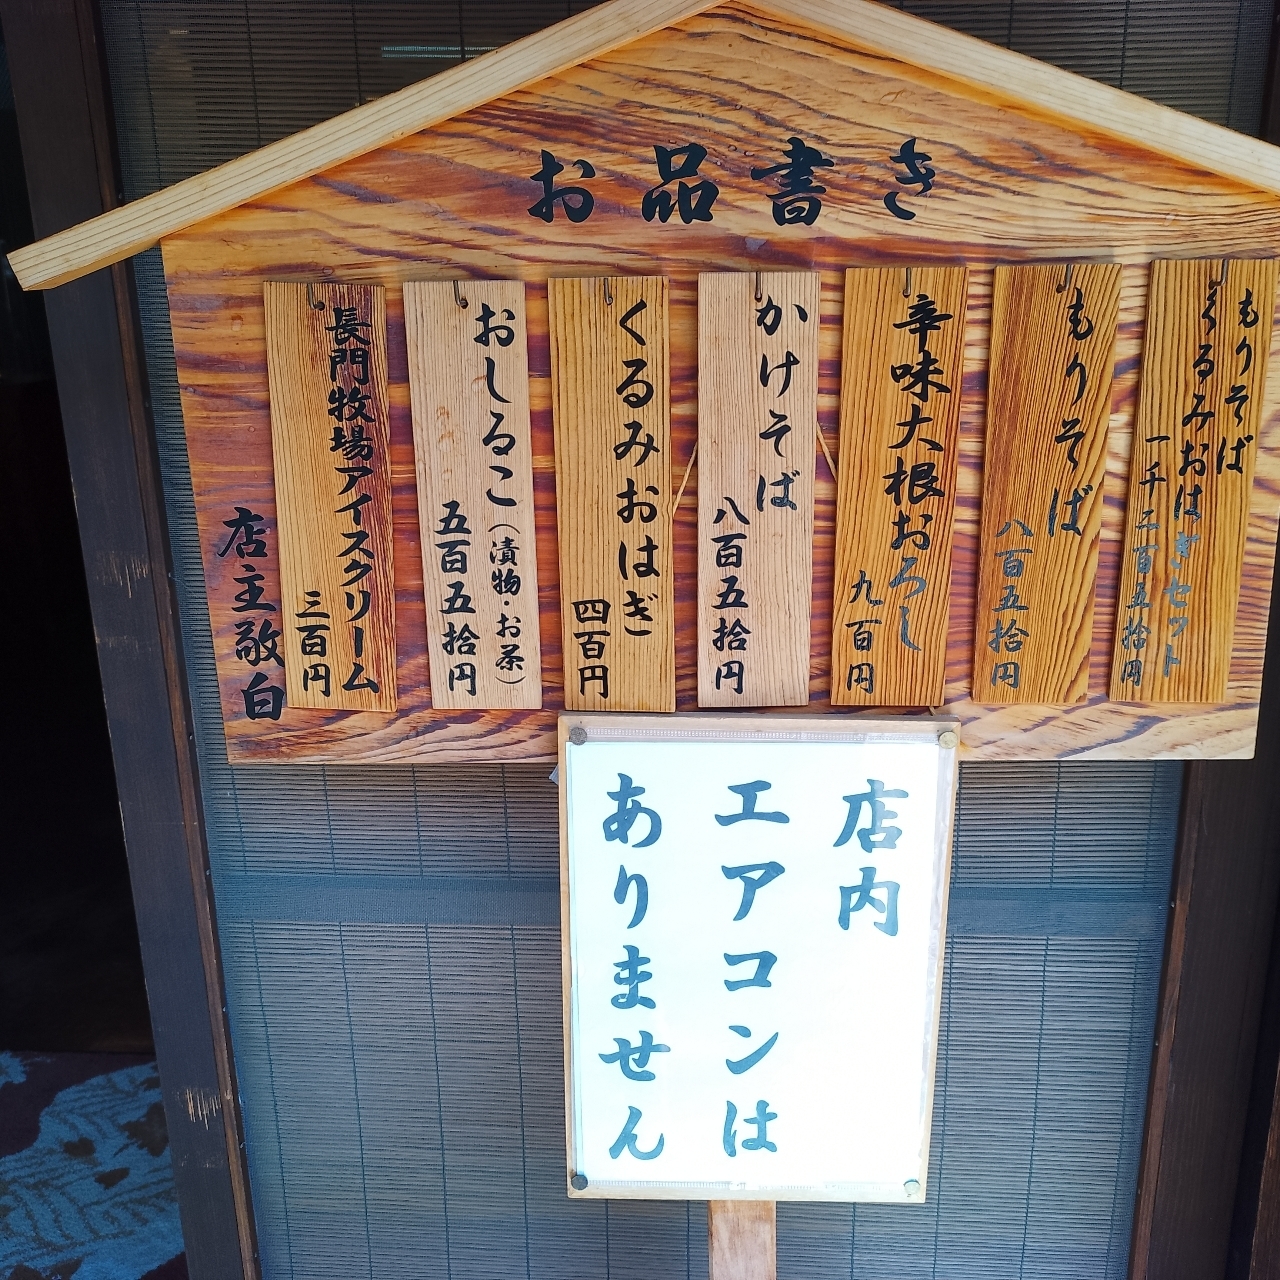 お品書き
もりそば
くるみおはぎセット
一千二百五拾円
もりそば
八百五拾円
辛味大根おろし
九百円
かけそば
八百五拾円
くるみおはぎ
四百円
おしるこ(漬物・お茶)
五百五拾円
長門牧場アイスクリーム
三百円
店主敬白
店内
エアコンは
ありません